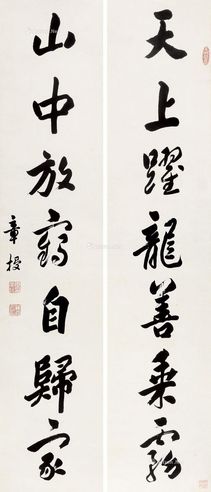 天上躍龍善乘霧
山中放鶴自歸家
章授